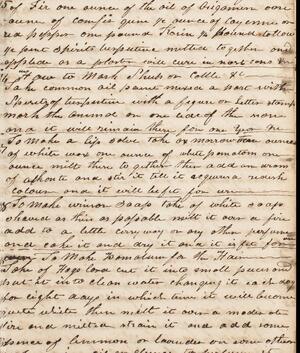 of Fir one ounce of the oil of Burgamen one
ounce of Camfir gum ye ounce of Cayenne or
red pepper one pound Rosin ye pound tallow
ye pint Spirits turpentine melted together and
applied as a plaster will cure in most cases
How to Mark Sheep or Cattle &c
Take common oil paint mixed a part with
Spirits of turpentine with a figure or letter stamp
mark the animal on one side of the horn
and it will remain there for one year
To Make a lip salve take
of white wax one ounce of
ounce melt these together then add one dram
of alkanet and stir it till it acquires a redish
colour and it will be fit for use
To Make winsor Soap take of white soap
shaved as thin as possable milt it over a fire
add to a little carryway or any other perfume
and cake it and dry it and it is fit for
To Make Pomatum for the Hair
Take of Hogs lard cut it into small pieces and
put it into clean water changing it each day
for eight days in which time it will become
quite white then milt it over a moderate
fire and milted strain it and add some
essence of Lemmon or lavender or some other